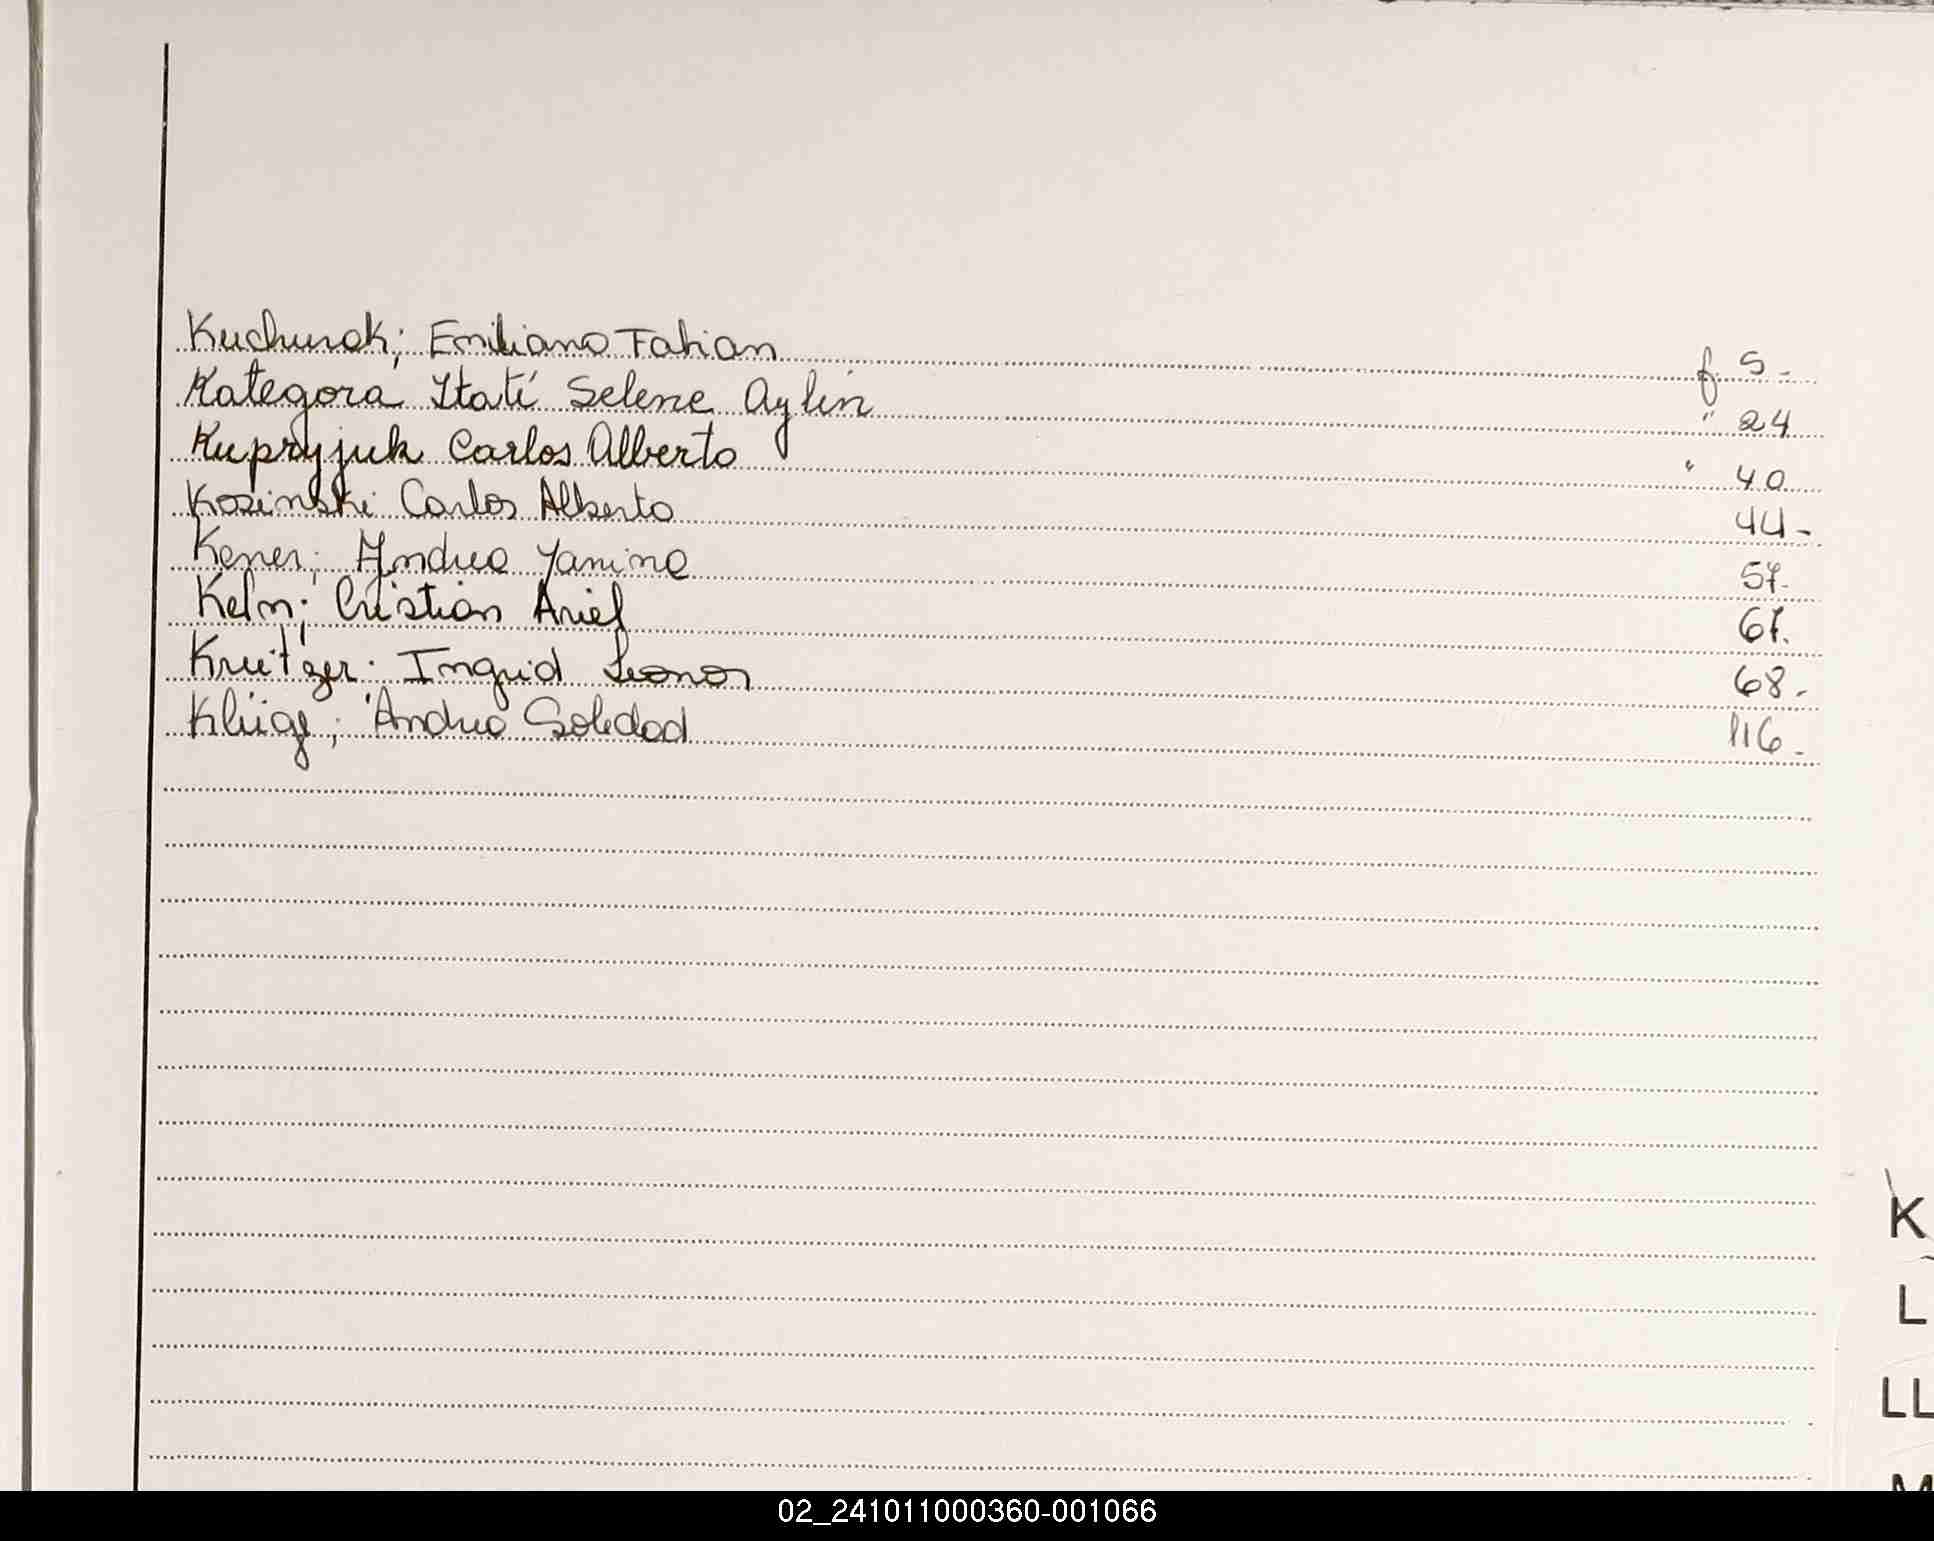 Kuchurak; Emiliano Fabian f. 5-
Kategora Itatí Selene Aylin " 24
Kupryjuk Carlos Alberto " 40
Kozinski Carlos Alberto 44-
Kener; Andrea Yanina 57-
Keln; Cristian Ariel 67.
Kreitzer. Ingrid Leonor 68-
Klüge; Andrea Soledad 116-
K
L
LL
M
02_241011000360-001066